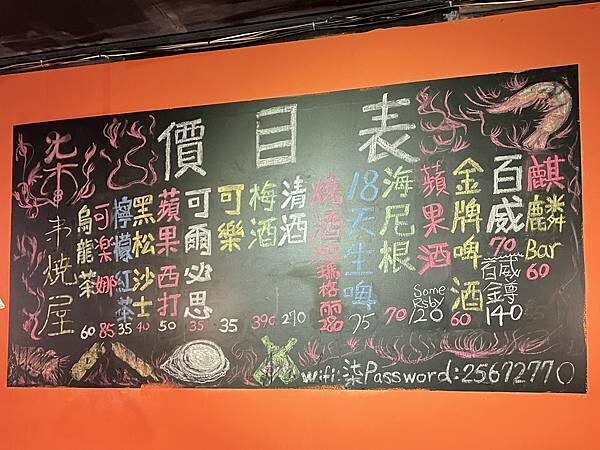 價目表
麒麟Bar 60
百威 70
百威鐏 140
金牌啤酒 60
蘋果酒
Somersby 120
海尼根 70
18天生啤 95
燒酒瑪格麗 280
清酒 270
梅酒 390
可樂 35
可爾必思 35
蘋果西打 50
黑松沙士 40
檸檬紅茶 35
可樂娜 85
烏龍茶 60
柒串燒屋
wifi:柒 Password:25672770